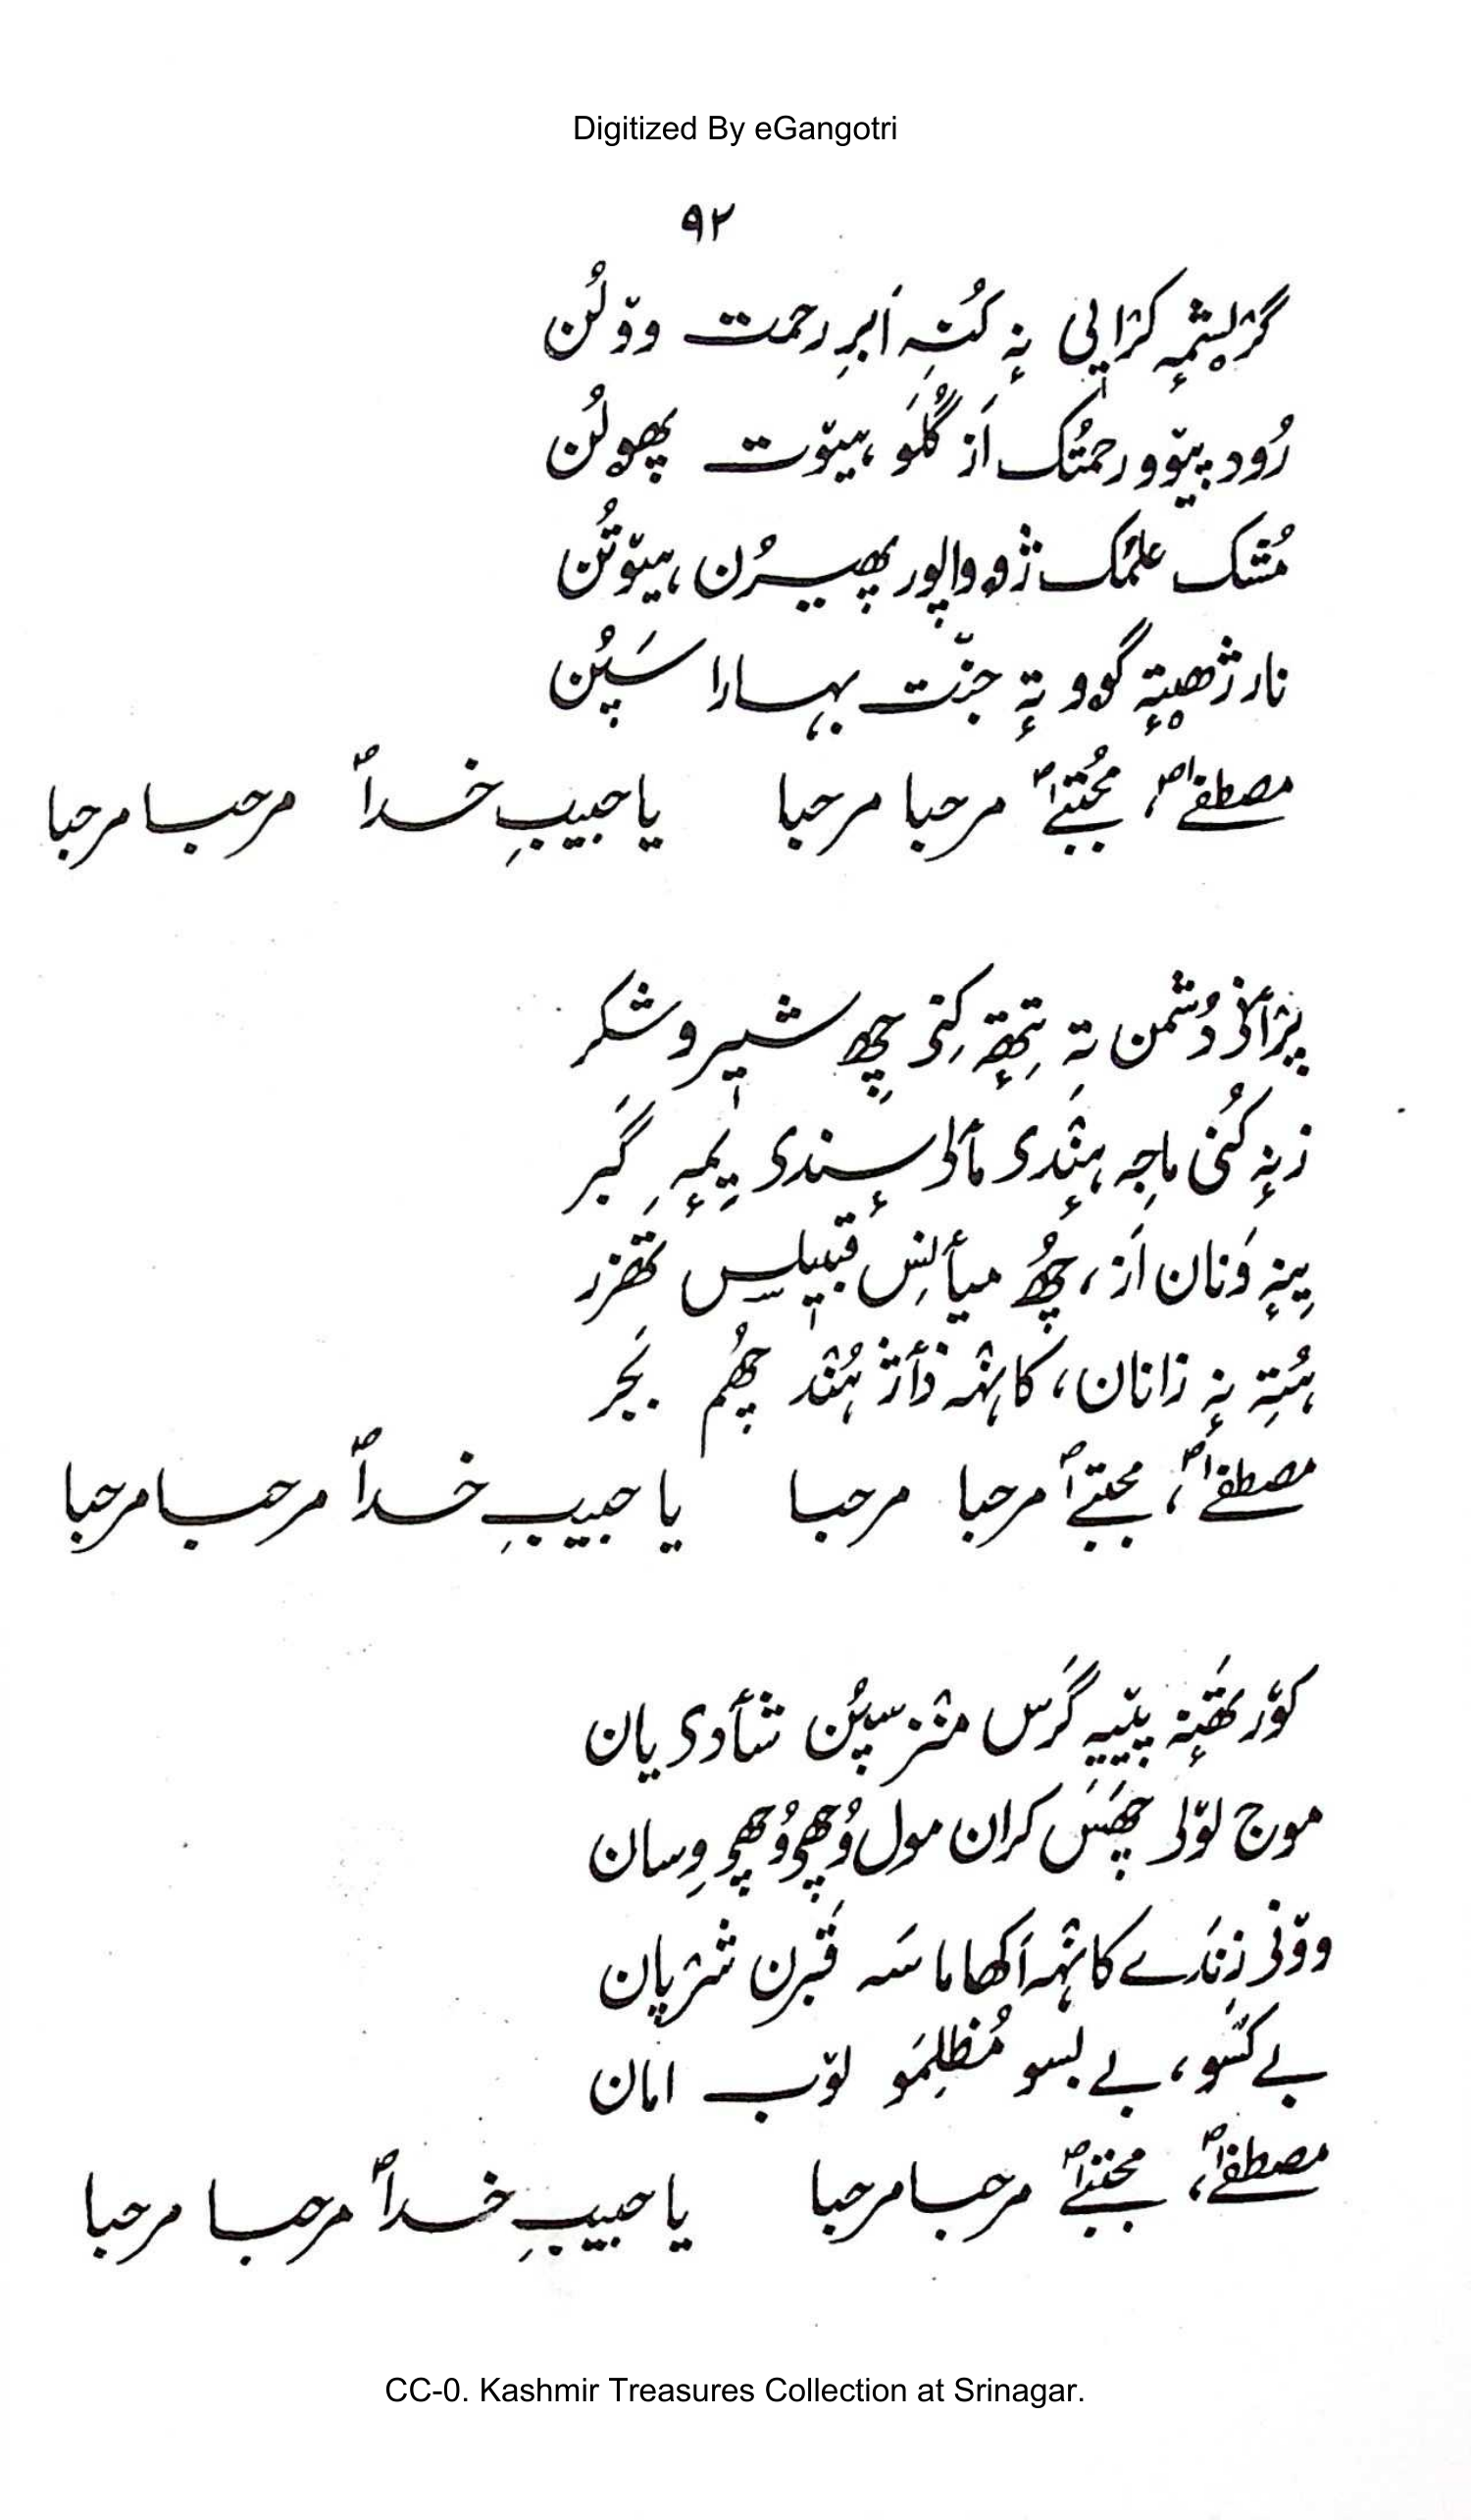 Digitized By eGangotri
۹۲
گرٛیشمہٕ کرٛایی نہٕ کُنہِ اَبرِ رحمت وۄلُن
رُود پیوٚو رحمتُک اَز گُلَو ہیوٚت پھولُن
مُشک علمُک ژۄواپور پھیرُن ہیوٚتُن
نار ژھیتہٕ گوو تہٕ جنّت بہارا سَپُن
مصطفےٰؐ، مُجتبےٰؐ مرحبا مرحبا یا حبیبِ خداؐ مرحبا مرحبا
پرٛأنؠ دُشمن تہٕ تِتھہٕ کِنؠ چھِ شیٖر و شکر
زنہٕ کُنی ماجِہ ہنٛدؠ مألؠ سٕندؠ یِمہٕ گَبَر
یِنہٕ وَنان اَز، چھُ میأنِس قبیٖلس تھزر
ہُتہِ نہٕ زانان، کانٛہہ ذأژ ہُنٛد چھُم بَجر
مصطفےٰؐ، مجتبےٰؐ مرحبا مرحبا یا حبیبِ خداؐ مرحبا مرحبا
کوٗر تھَنہٕ پییہِ گَرَس منٛز سپُن شأدی یان
موج لوٚلؠ چھَسَ کران مول وُچھؠ وُچھؠ وِسان
وۄنؠ زِندَے کانٛہہ اَکھا ما سَہ قَبرن شرٛپان
بے کَسَو، بے بسو مُظلِمَو لوٚب امان
مصطفےٰؐ، مجتبےٰؐ مرحبا مرحبا یا حبیبِ خداؐ مرحبا مرحبا
CC-0. Kashmir Treasures Collection at Srinagar.